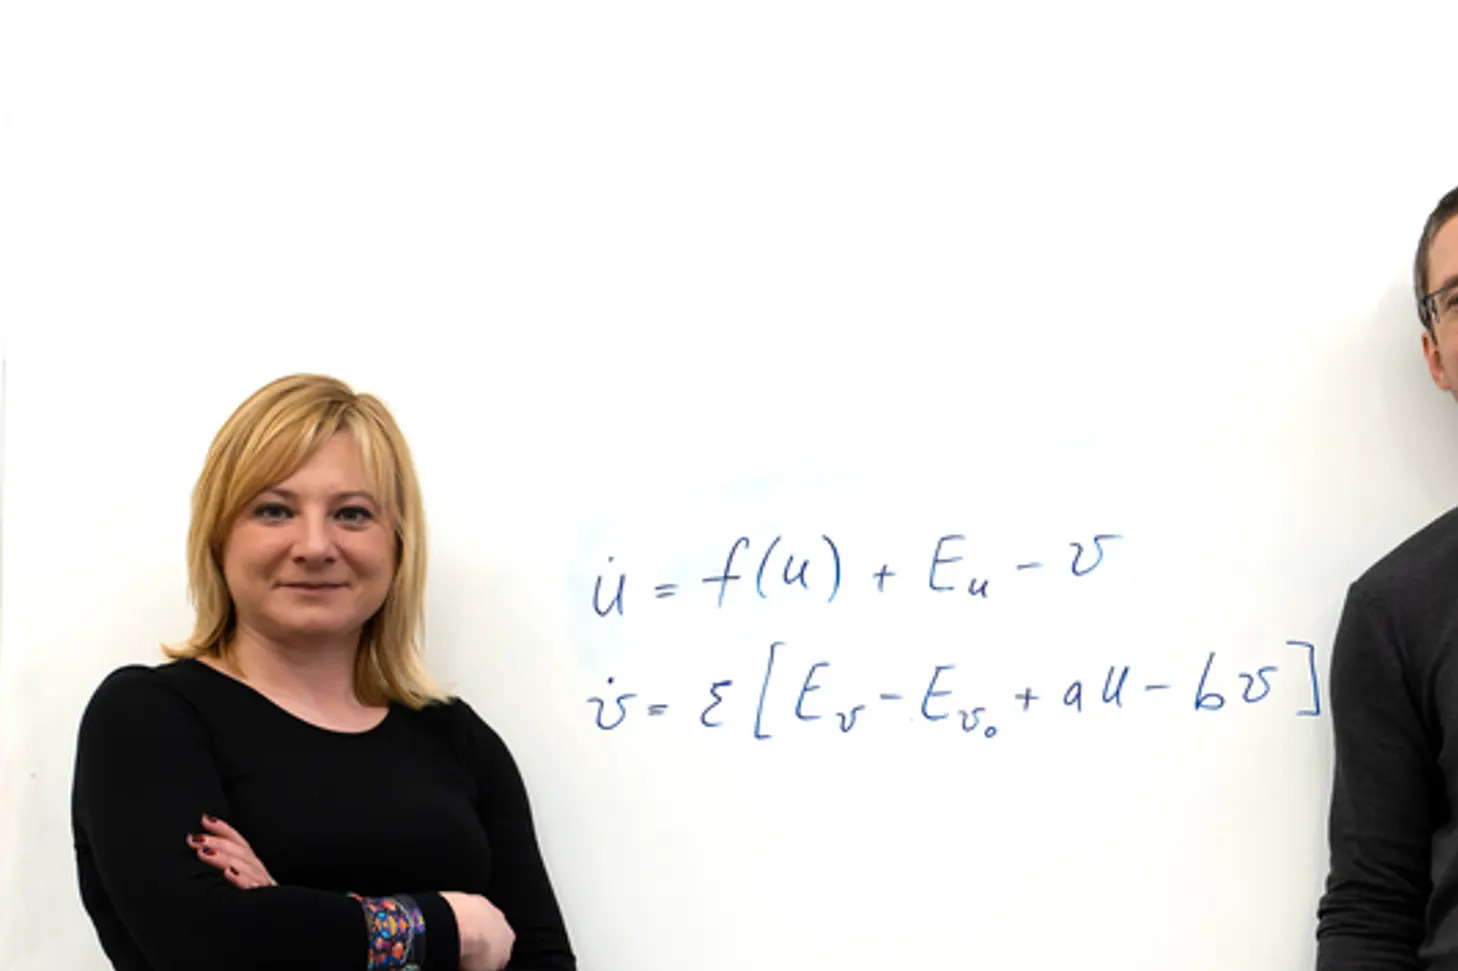 u̇ = f(u) + E_u - v
v̇ = ε [E_v - E_v₀ + au - bv]